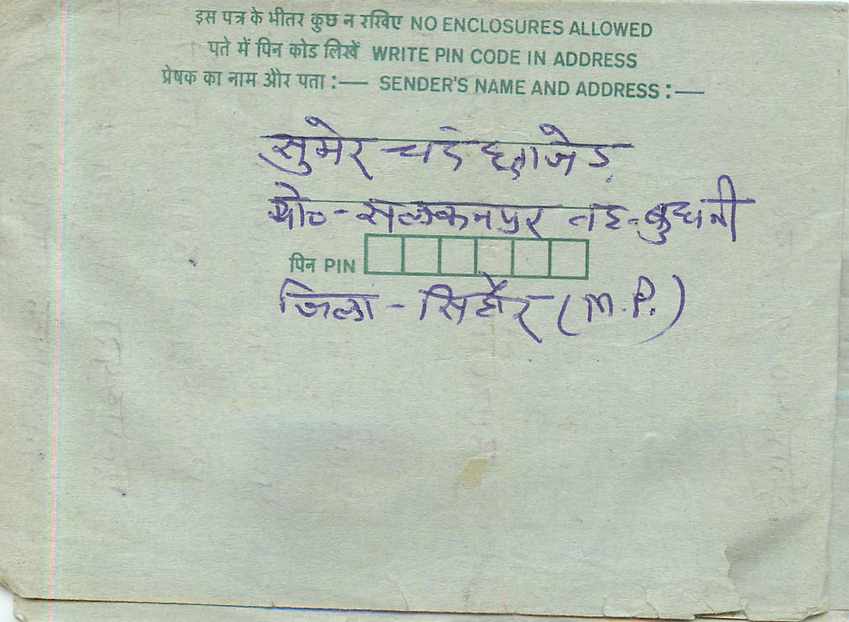 इस पत्र के भीतर कुछ न रखिए NO ENCLOSURES ALLOWED
पते में पिन कोड लिखें WRITE PIN CODE IN ADDRESS
प्रेषक का नाम और पता :— SENDER'S NAME AND ADDRESS :—
सुमेर चंद छाजेड़
पो०-सलकनपुर तह-बुधनी
पिन PIN
जिला-सिहोर (M.P.)